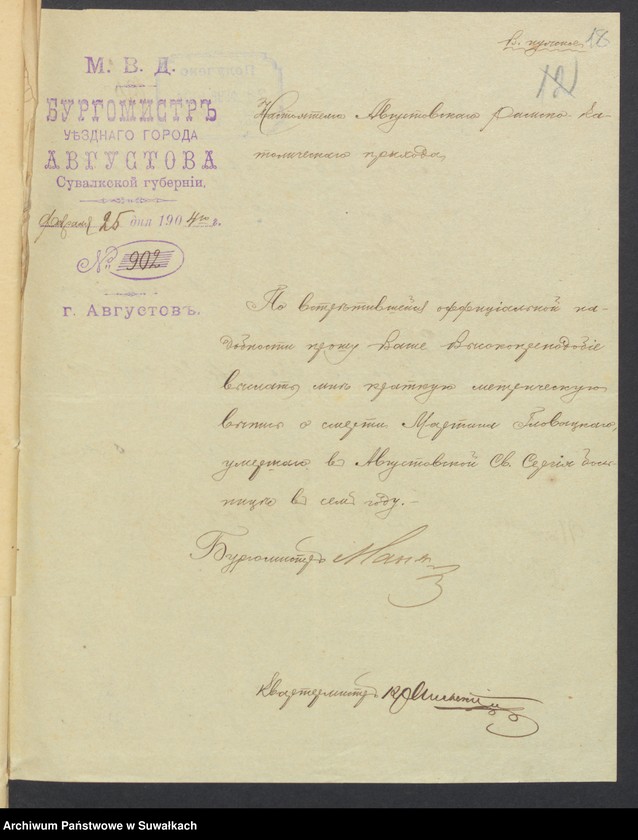 М. В. Д.
БУРГОМИСТРЪ
УѢЗДНАГО ГОРОДА
АВГУСТОВА
Сувалкской губерніи.
Февраля 25 дня 1904 го г.
№ 902
г. Августовъ.
18
121
Настоятелю Августовскаго римско-ка-
толическаго прихода
По встрѣтившейся оффиціальной на-
добности прошу Ваше Высокопреподобіе
выслать мнѣ краткую метрическую
выпись о смерти Мартина Гловацкаго,
умершаго въ Августовской Св. Сергія боль-
ницѣ въ семъ году.-
Бургомистръ
Квартермистръ
Archiwum Państwowe w Suwałkach